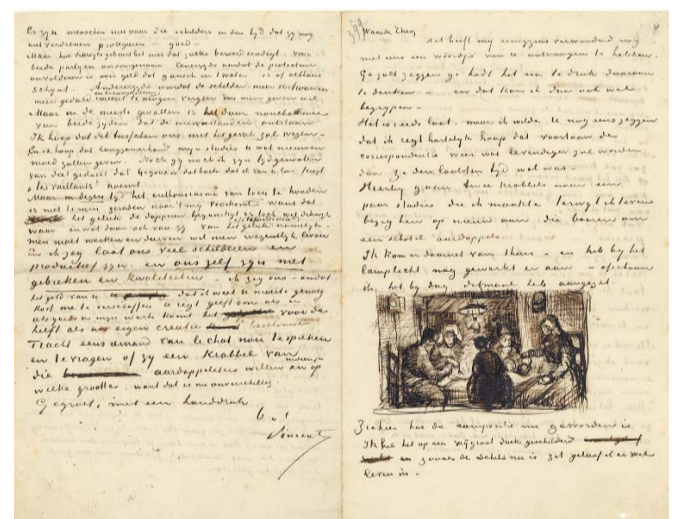 Er zijn menschen niet waar die schilders in den tijd dat zij nog
niet verdienen protegeeren – goed –
Maar hoe dikwijls gebeurt het niet dat zulks beroerd eindigt voor
beide partijen onaangenaam. Eenerzijds omdat de protecteur
ontevreden is over geld dat gansch in t water is of althans
schijnt. Anderzijds omdat de schilder meer vertrouwen
meer geduld
Maar in de meeste gevallen is het door nonchalance
van beide zijden dat de misverstanden ontstaan
Ik hoop dat dat tusschen ons niet het geval zal wezen –
En ik hoop dat langzamerhand mijn studies U wat nieuwen
moed zullen geven. Noch gij noch ik zijn tijdgenooten
van dat geslacht dat
"les vaillants" noemt
Maar in dezen tijd het enthousiasme van toen te houden
is niettemin geraden naar 't mij voorkomt want dat
het geluk de dapperen is toch wel dikwijls
waar en wat daar ook van zij van het geluk namelijk
men moet werken en durven wil men wezenlijk leven
En ik zeg laat ons veel schilderen en
productief zijn en ons zelf zijn met
gebreken en kwaliteiten – ik zeg ons – omdat
het geld van U dat ik weet U moeite genoeg
kost me te verschaffen U regt geeft om als er
iets goeds in mijn werk komt het voor de
helft als uw eigen creatie te beschouwen
Tracht eens iemand van le Chat noir te spreken
en te vragen of zij een krabbel van
die aardappeleters willen en op
welke grootte, want dat is me onverschillig
Gegroet, met een handdruk
b. t.
Vincent
Waarde Theo,
Het heeft mij eenigzins verwonderd nog
niet eens een woordje van U ontvangen te hebben.
Ge zult zeggen ge hadt het nu te druk daaraan
te denken – en dat kan ik dan ook wel
begrijpen –
Het is reeds laat – maar ik wilde U nog eens zeggen
dat ik regt hartelijk hoop dat voortaan de
correspondentie weer wat levendiger zal worden
dan ze den laatsten tijd wel was –
Hierbij gaan twee krabbels naar een
paar studies die ik maakte terwijl ik tevens
bezig ben op nieuw aan die boeren om
een schotel aardappels.
Ik kom er daarnet van thuis – en heb bij het
lamplicht nog gewerkt er aan – ofschoon
ik het bij dag ditmaal heb aangezet.
Ziehier hoe de compositie nu geworden is
Ik heb het op een vrij groot doek geschilderd
en zooals de schets nu is zit geloof ik er wel
leven in –